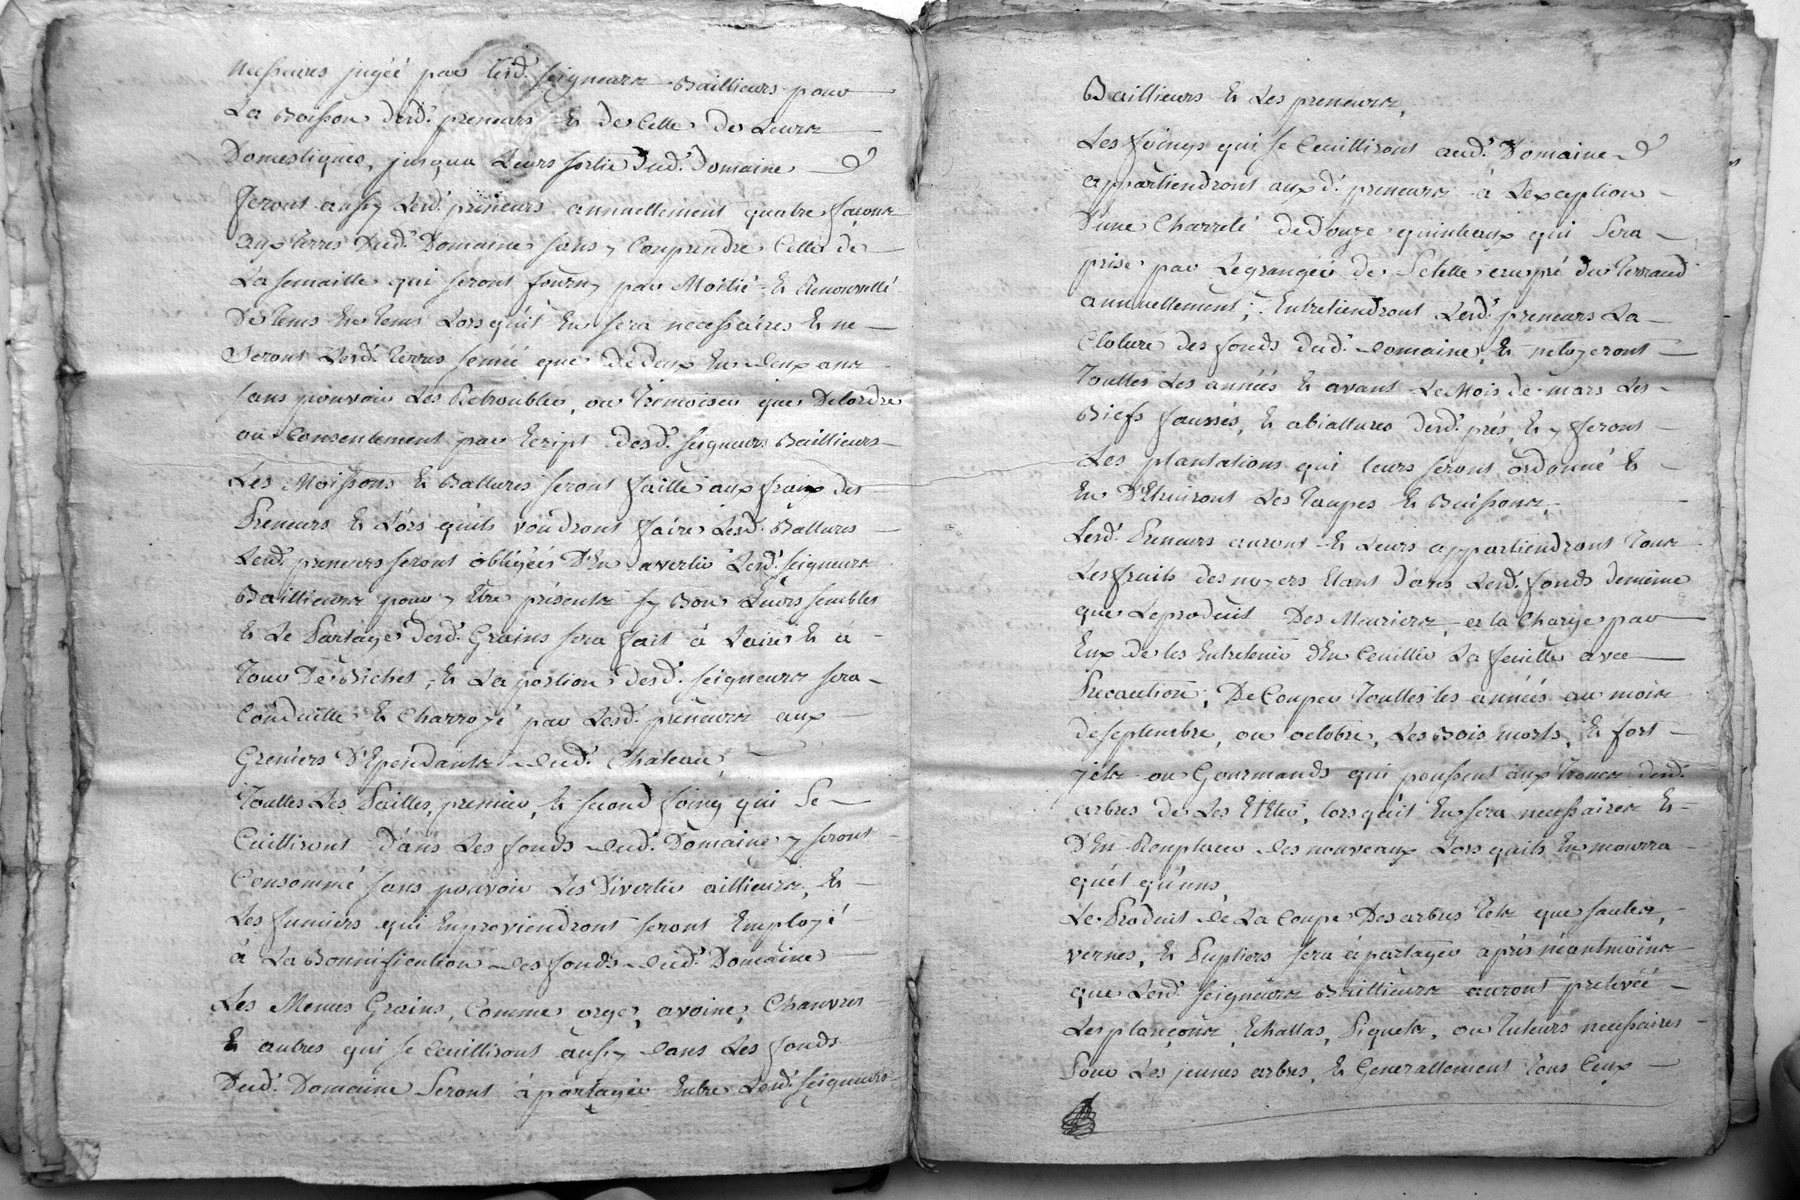 necessaires jugéé par lesd. seigneurs Baillieurs pour
La Boisson desd. preneurs Et de Celle de Leurs
Domestiques, jusqua Leurs sortie dud. Domaine
feront aussy Lesd. preneurs annuellement quatre façons
aux terres Dud. Domaine sans y Comprendre Celle de
La semaille qui seront fourny par Moitié Et Renouvellé
De tems En tems Lors quil En sera necessaires Et ne
Seront Lesd. terres semée que de deux En deux ans
sans pouvoir Les Retroubler, ou Tremoiser que De Lordre
ou Consentement par Ecript desd. seigneurs Baillieurs
Les Moissons Et Battures seront faitte aux fraix des
Preneurs Et Lors quils voudront faire Lesd. Battures
Lesd. preneurs seront obligéés D'En avertir Lesd. seigneurs
Baillieurs pour y Etre présents sy Bon Leurs semble
Et Le Partage desd. Grains sera fait à Laire Et à
Tour De Bichet, Et La portion desd. seigneurs sera
Conduitte Et Charroyé par Lesd. preneurs aux
Greniers D'Ependants dud. Château,
Touttes Les Pailles, premier, Et second foing qui Se
Cuilliront dans Les fonds dud. Domaine y seront
Consommé sans pouvoir Les Divertir aillieurs, Et
Les fumiers qui En proviendront seront Employé
à La Bonnification des fonds dud. Domaine
Les Menus Grains, Comme orge, avoine, Chanvres
Et autres qui se Ceuilliront aussy dans Les fonds
Dud. Domaine Seront à partager Entre Lesd. seigneurs
Baillieurs Et Les preneurs,
Les foings qui se Ceuilliront aud. Domaine
appartiendront aux d. preneurs à Lexception
D'une Charreté de Douze quinteaux qui Sera
prise par Le granger de au pré du Terraud
annuellement; Entretiendront Lesd. preneurs La
Cloture des fonds dud. domaine, Et netoyeront
Touttes Les annéés Et avant Le Mois de mars Les
Biefs faussés, Et abiattures desd. prés, Et y feront
Les plantations qui leurs seront ordonné Et
En D'Etruiront Les Taupes Et Buissons,
Lesd. Preneurs auront Et Leurs appartiendront Tous
Les fruits des noyers Etant dans Lesd. fonds de même
que Le produit Des Meuriers, a la Charge par
Eux de les Entretenir d'En Ceuillir La feuille avec
Precaution, De Couper Touttes les annéés au mois
de septembre, ou octobre, Les Bois morts, Et fort
jets ou Gourmands qui poussent aux Troncs desd.
arbres de Les Etter, lors quil En sera necessaires Et
D'En Remplacer des nouveaux Lors quils En mourra
quel qu'uns
Le Produit de La Coupe Des arbres Tels que saules,
vernes, Et Pupliers sera à partager après néantmoins
que Lesd. seigneurs Baillieurs auront prelevéé
Les plançons, Echallas, Piquets, ou Tuteurs necessaires
Pour Les jeunes arbres, Et Generallement tous Ceux